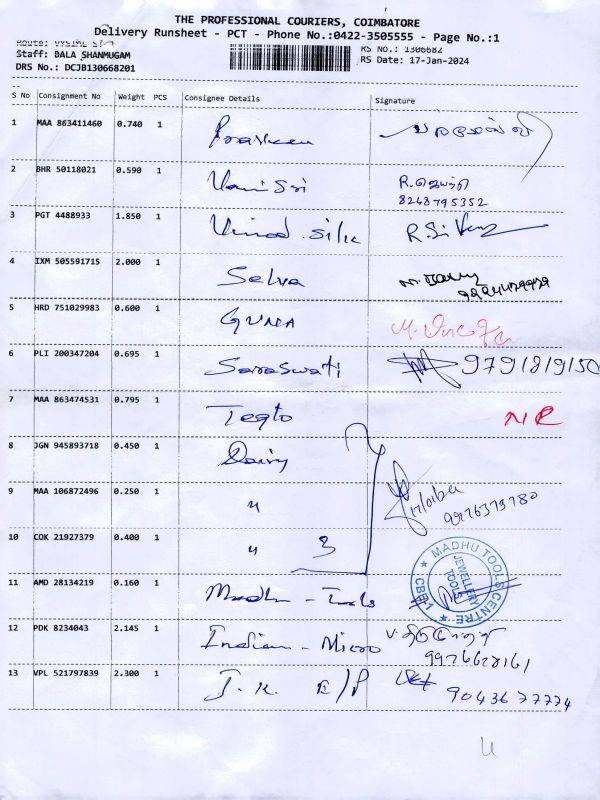 THE PROFESSIONAL COURIERS, COIMBATORE
Delivery Runsheet - PCT - Phone No.:0422-3505555 - Page No.:1
Route:
Staff: BALA SHANMUGAM
RS No.: 1306682
DRS No.: DCJB130668201
RS Date: 17-Jan-2024
S No Consignment No Weight PCS Consignee Details Signature
1 MAA 863411460 0.740 1 Praveen
2 BHR 50118021 0.590 1 Vani Sri R.ஜெயந்தி
8248795352
3 PGT 4488933 1.850 1 Vinod Silk
4 IXM 505591715 2.000 1 Selva
5 HRD 751029983 0.600 1 GUNA
6 PLI 200347204 0.695 1 Saraswati 9791819150
7 MAA 863474531 0.795 1 Teqto NR
8 JGN 945893718 0.450 1 Dairy
9 MAA 106872496 0.250 1 "
9976379780
10 COK 21927379 0.400 1 " 3
MADHU TOOLS CENTRE
JEWELLERY TOOLS
CBE-1
11 AMD 28134219 0.160 1 Madhu - Tools
12 PDK 8234043 2.145 1 Indian - Micro
9976628161
13 VPL 521797839 2.300 1 J.K. E/P
9043677774